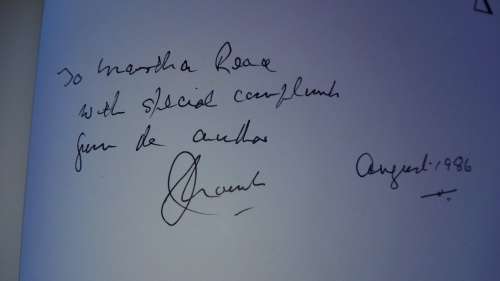 To Martha Reae
with special compliments
from the author
August 1986